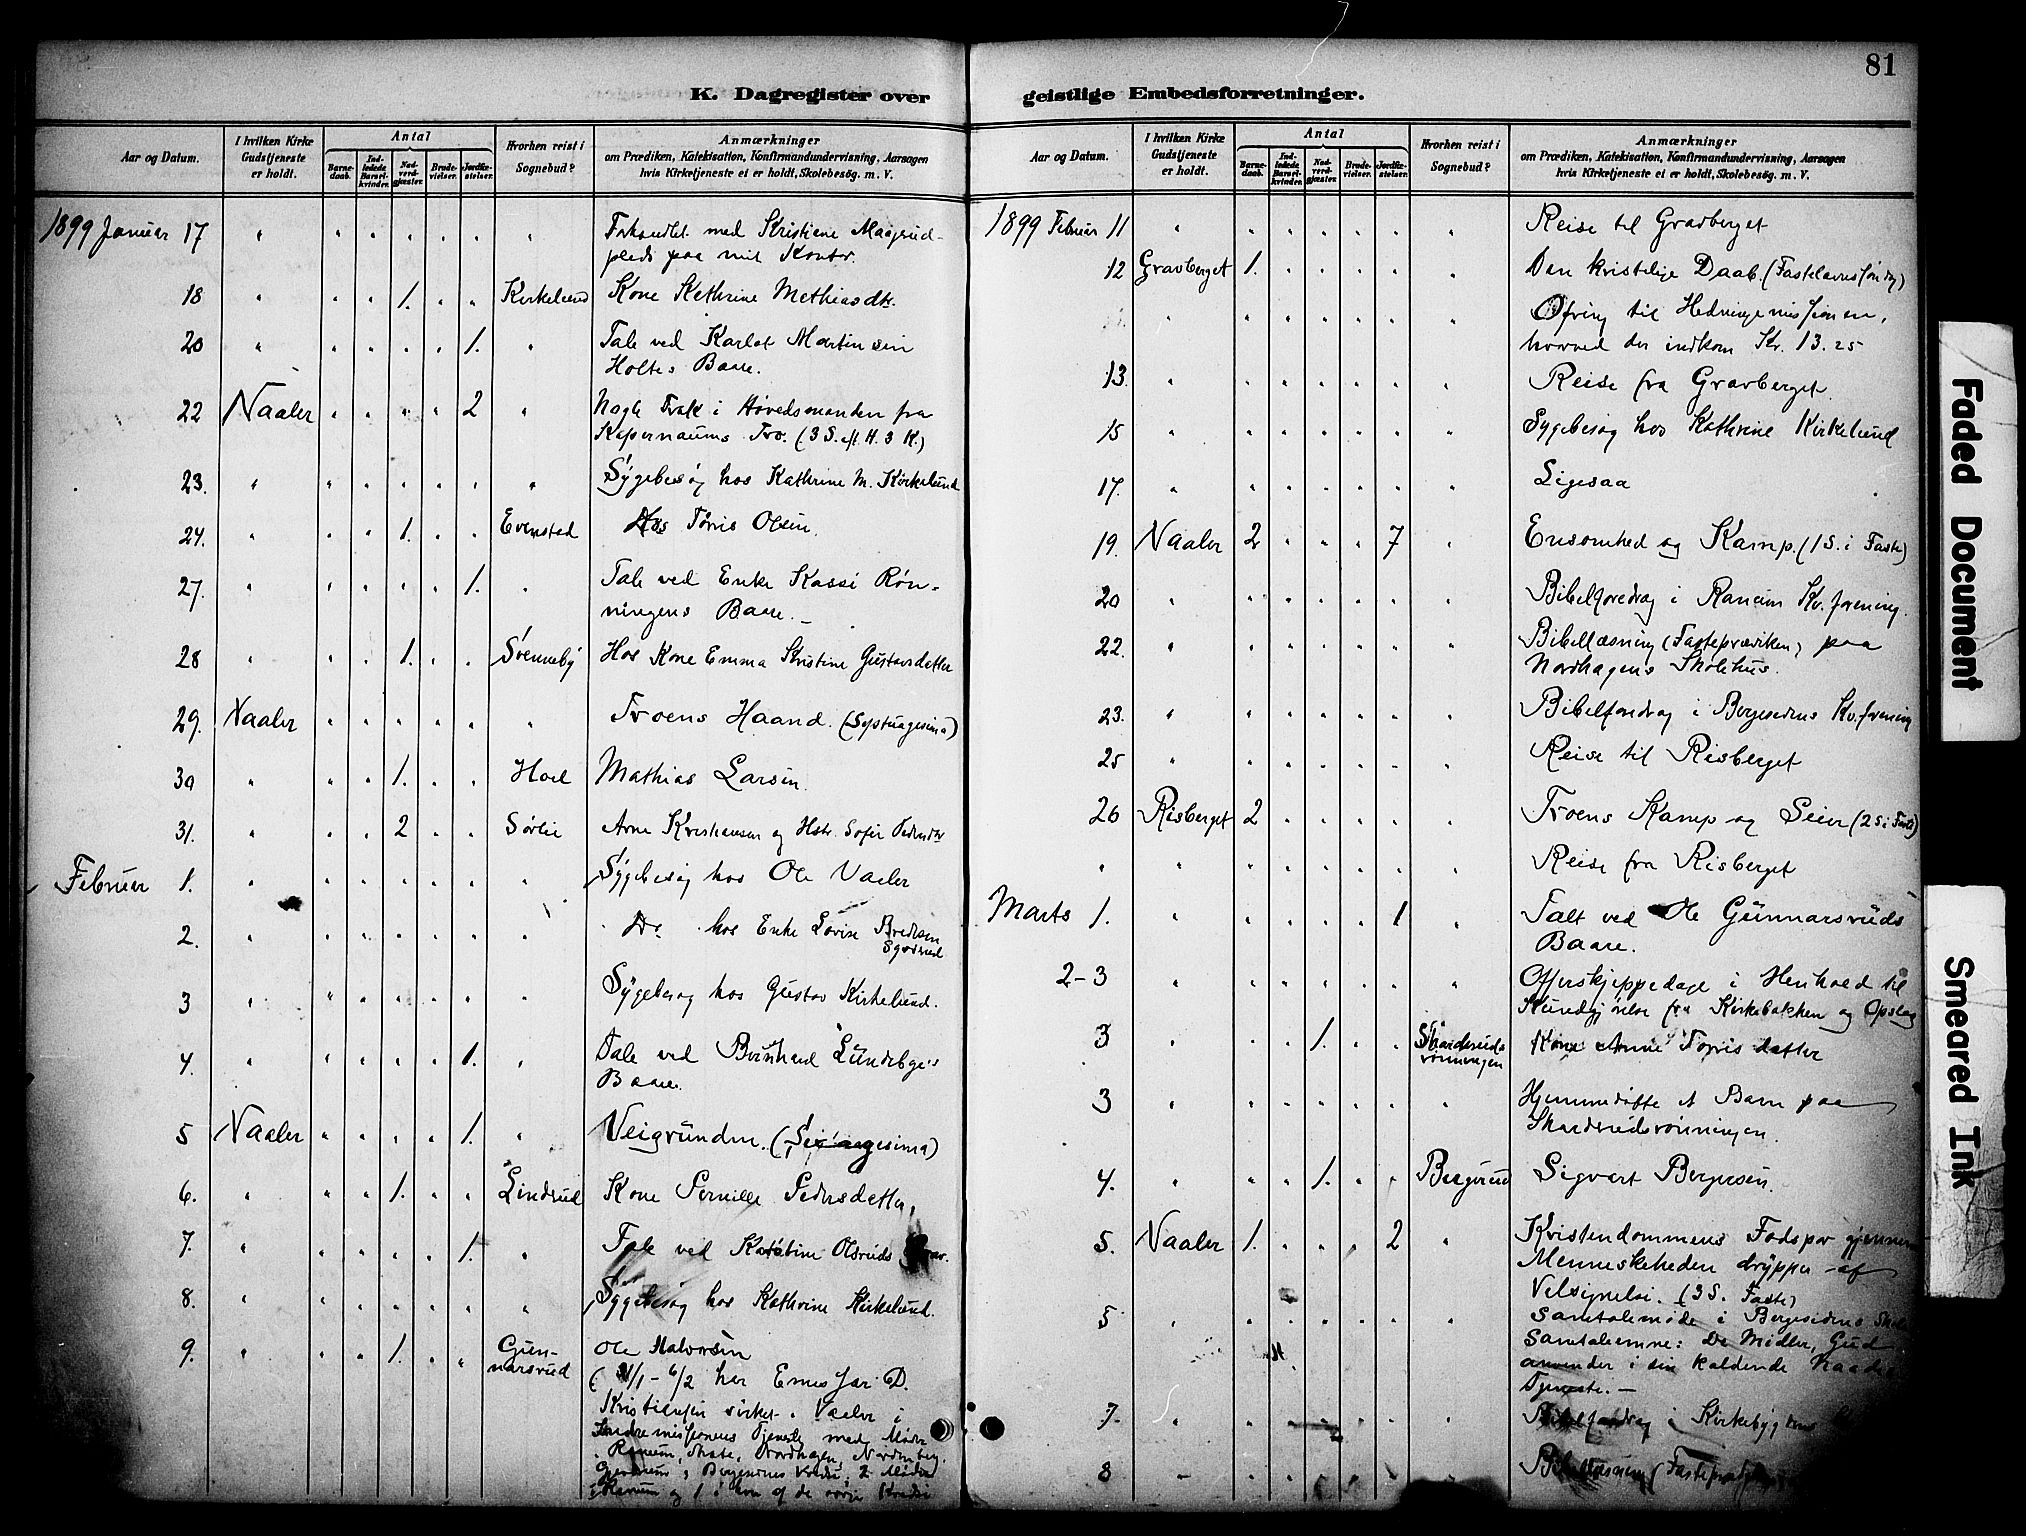 81
K. Dagregister over geistlige Embedsforretninger.
Aar og Datum.
I hvilken Kirke Gudstjeneste er holdt.
Antal
Barnedaab.
Indledede Barselkvinder.
Nadverdgjæster.
Brudevielser.
Jordfæstelser.
Hvorhen reist i Sognebud?
Anmærkninger
om Prædiken, Katekisation, Konfirmandundervisning, Aarsagen
hvis Kirketjeneste ei er holdt, Skolebesøg. m. V.
1899 Januar 17 " " " " " " " Forhandlet med Kristiane Maagsud-
plads paa mit Kontor.
18 " " " 1. " " Kirkelund Kone Kathrine Mathiasdtr.
20 " " " " " 1. " Tale ved Karlot Martinsen
Holtes Baare.
22 Vaaler " " " " 2 " Nogle Træk i Høvedsmanden fra
Kapernaums Tro. (3 S. eft. H. 3 K.)
23. " " " " " " " Sygebesøg hos Kathrine M. Kirkelund
24. " " " 1. " " Evenstad Hos Tørris Olsen.
27. " " " " " 1. " Tale ved Enke Kassi Røn-
ningens Baare.
28 " " " 1. " " Svenneby Hos Kone Emma Kristine Gustavsdatter
29. Vaaler " " " " " " Troens Haand. (Septuagesima)
30 " " " 1. " " Hoel Mathias Larsen.
31. " " " 2 " " Sørlie Arne Kristiansen og Hstr. Sofie Pedersdtr
Februar 1. " " " " " " " Sygebesøg hos Ole Vaaler
2. " " " " " " " Do hos Enke Lovise Bredesen
3 " " " " " " " Sygebesøg hos Gustav Kirkelund.
4. " " " " " 1. " Tale ved Bernhard Lundebye's
Baare.
5 Vaaler " " " " 1. " Veigrunden. (Sexagesima)
6. " " " 1. " " Lindsrud Kone Pernille Pedersdatter,
7. " " " " " 1. " Tale ved Karoline Olsruds Grav.
8. " " " " " " " Sygebesøg hos Kathrine Kirkelund.
9. " " " 1. " " Gun-
narsrud Ole Halvorsen
(31/1 - 6/2 har Emissær D.
Kristiansen virket i Vaaler i
Indremissionens Tjeneste med Møder
i Ranum, Nordhagen,
Ranum og 1 i hver af de øvrige Kredse
Aar og Datum.
I hvilken Kirke Gudstjeneste er holdt.
Antal
Barnedaab.
Indledede Barselkvinder.
Nadverdgjæster.
Brudevielser.
Jordfæstelser.
Hvorhen reist i Sognebud?
Anmærkninger
om Prædiken, Katekisation, Konfirmandundervisning, Aarsagen
hvis Kirketjeneste ei er holdt, Skolebesøg. m. V.
1899 Februar 11 " " " " " " " Reise til Gravberget
12 Gravberget 1. " " " " " Den kristelige Daab. (Fastelavnssøndag)
" " " " " " " Ofring til Hedningemissionen,
hvorved der indkom Kr. 13.25
13. " " " " " " " Reise fra Gravberget.
15 " " " " " " " Sygebesøg hos Kathrine Kirkelund
17. " " " " " " " Ligesaa
19. Vaaler 2 " " " 7 " Ensomhed og Kamp. (1 S. i Faste)
20 " " " " " " " Bibelforedrag i Ranum Kv.forening.
22. " " " " " " " Bibellæsning (Fasteprædiken) paa
Nordhagens Skolehus.
23. " " " " " " " Bibelforedrag i Bergesidens Kv.forening
25 " " " " " " " Reise til Risberget
26 Risberget 2 " " " " " Troens Kamp og Seier (2 S i Faste)
" " " " " " " " Reise fra Risberget
Marts 1. " " " " " 1 " Talt ved Ole Gunnarsruds
Baare.
2-3 " " " " " " " Offerskjeppedage i Henhold til
Kundgjørelse fra Kirkebakken og Opslag
3 " " " 1. " " Skarderuds
rønningen Kone Anne Torris datter
3 " " " " " " " Hjemmedøbte et Barn paa
Skarderudsrønningen.
4. " " " 1. " " Bergerud Sigvart Bergersen.
5. Vaaler 1. " " " 2 " Kristendommens Fodspor gjennem
Menneskeheden drypper af
Velsignelse. (3 S. Faste)
5 " " " " " " " Samtalemøde i Bergesidens
Samtaleemne: De Midler, Gud
anvender i sin kaldende Naades
Tjeneste.
7. " " " " " " " Bibelforedrag i Kirkeby
8 " " " " " " " Bibellæsning
Faded Document
Smeared Ink